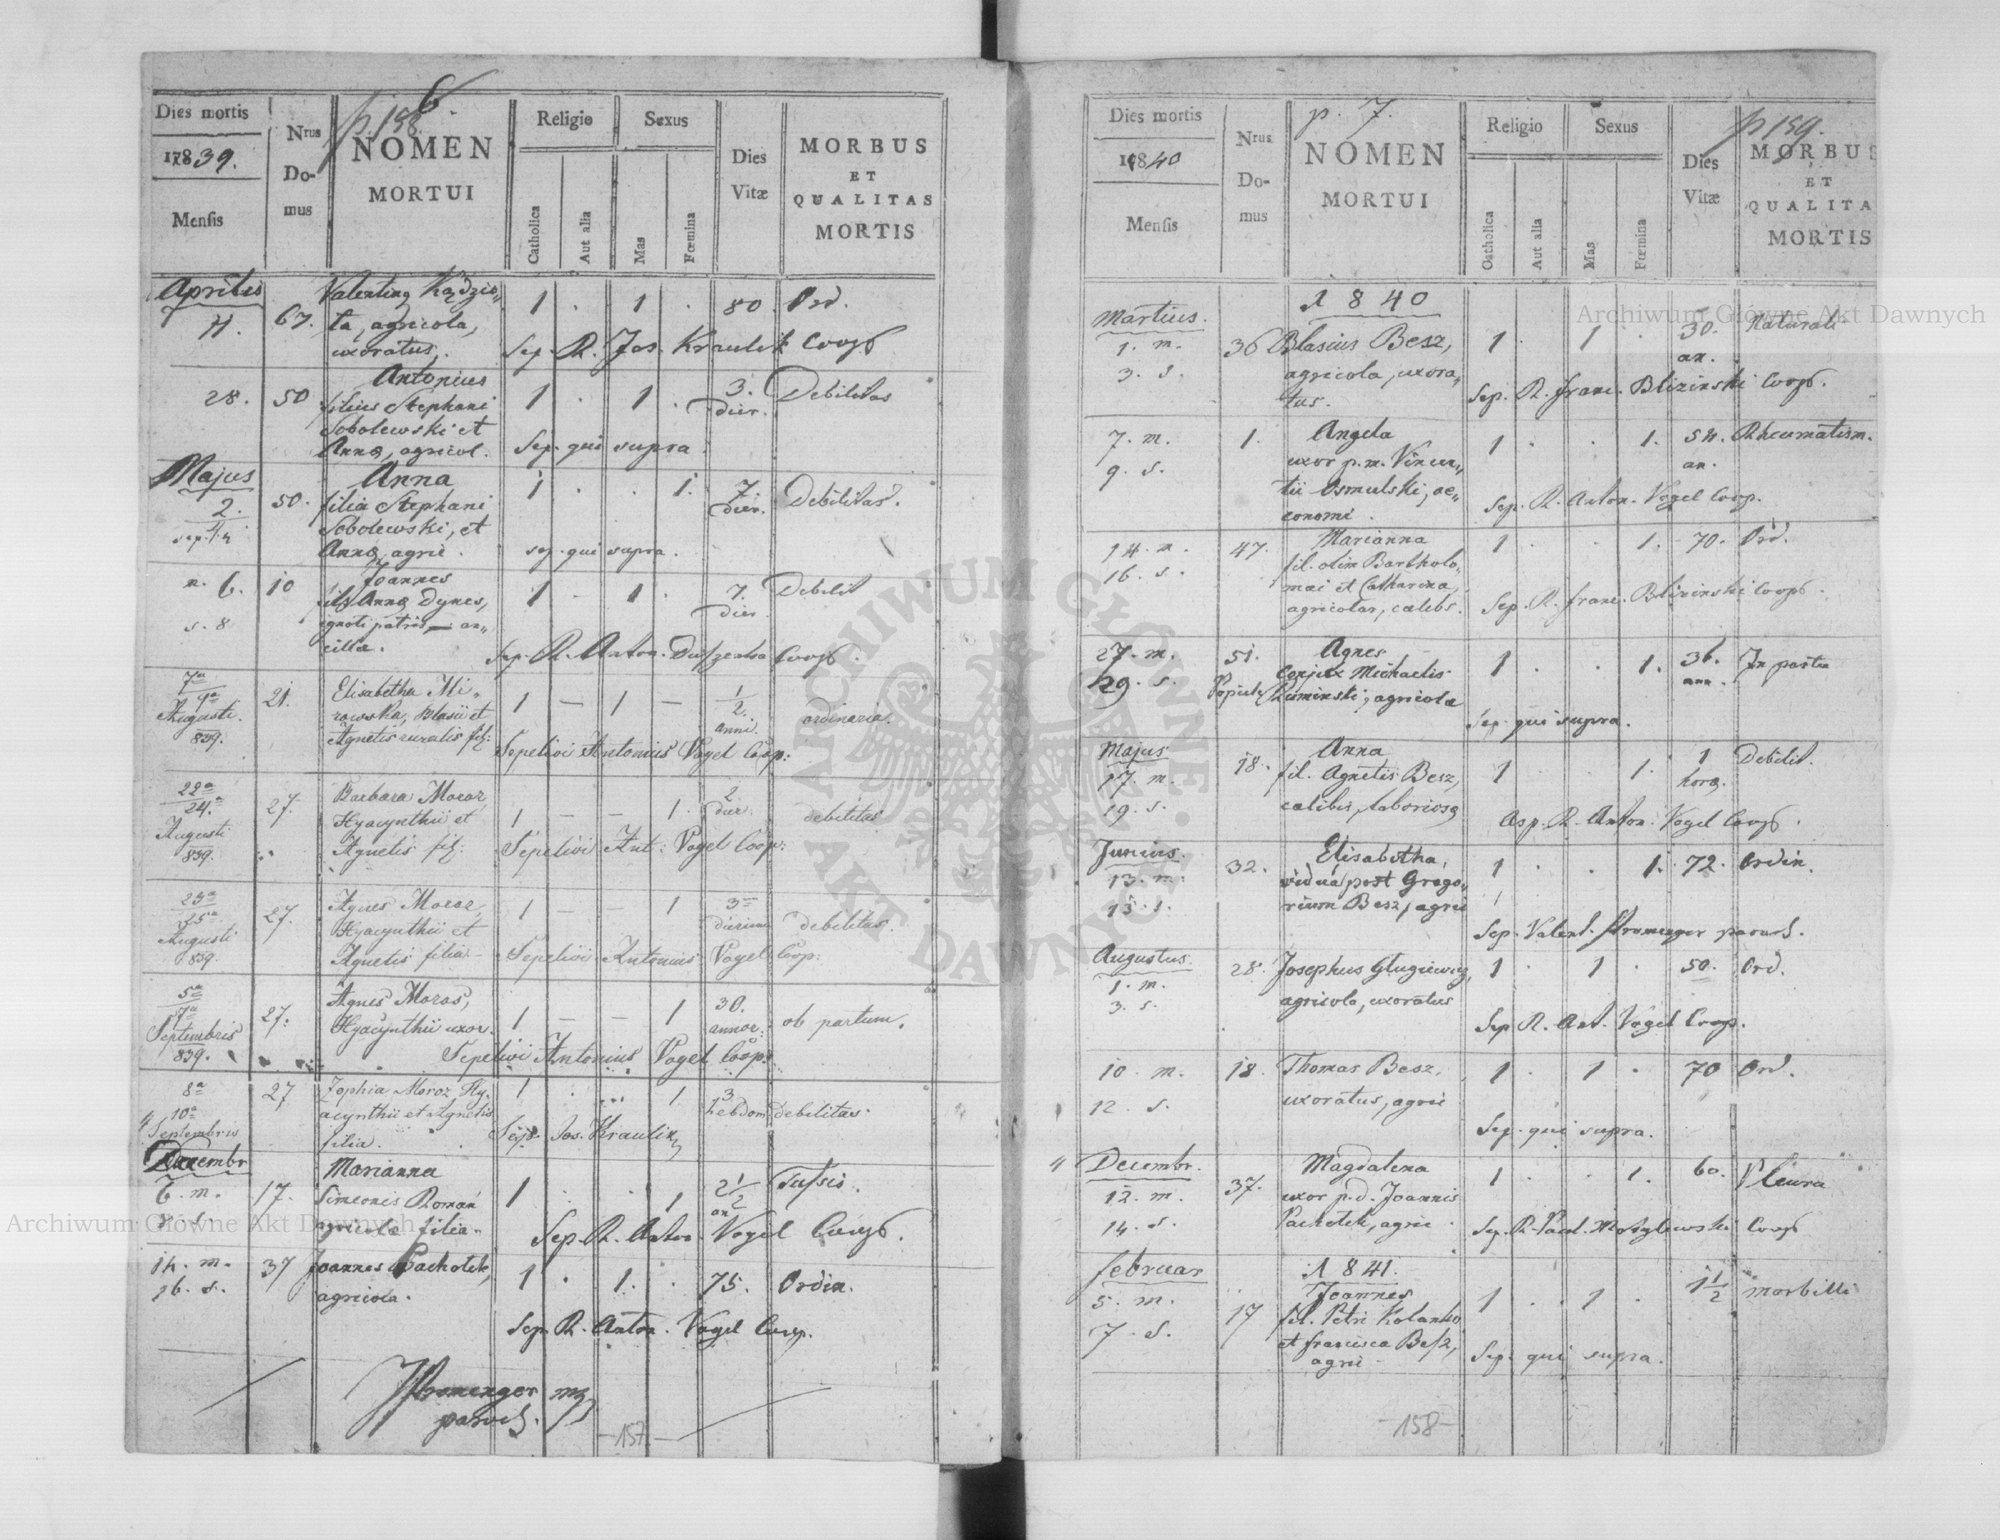 p. 158
6.
Dies mortis
1839.
Mensis
Nrus
Do-
mus
NOMEN
MORTUI
Religio
Catholica
Aut alia
Sexus
Mas
Fœmina
Dies
Vitæ
MORBUS
ET
QUALITAS
MORTIS
Aprilis
4.
67.
ta, agricola,
uxoratus,
1 . 1 . 80. Ord.
Sep. R. Jos. Kraulik Coop
28.
50
Antonius
filius Stephani
Sobolewski et
Annæ, agricol.
1 . 1 .
3.
dier.
Debilitas
Sep. qui supra.
Majus
2.
sep. 4
50.
Anna
filia Stephani
Sobolewski, et
Annæ, agric.
1 . . 1.
7.
dier.
Debilitas.
sep. qui supra.
m. 6.
s. 8
10
Joannes
Annæ Dynes,
ignoti patris, an„
cillæ.
1 . 1 .
7.
dier.
Debilit
Sep. R. Anton. Coop.
7a
9a
Augusti.
839.
21.
Elisabetha Mi„
rowska, Blasii et
Agnetis ruralis fil:
1 — 1 —
1/2
anni.
ordinaria.
Sepelivi Antonius Vogel Coop:
22a
24a
Augusti
839.
27.
Barbara Moroz,
Hyacynthii et
Agnetis fil:
1 — — 1.
2
dier.
debilitas
Sepelivi Ant: Vogel Coop:
23a
25a
Augusti
839.
27.
Agnes Moroz,
Hyacynthii et
Agnetis filia
1 — — 1
3
dierum
debilitas.
Sepelivi Antonius Vogel Coop:
5a
7a
Septembris
839.
27.
Agnes Moros,
Hyacynthii uxor.
1 — — 1
30.
annor.
ob partum.
Sepelivi Antonius Vogel Coop:
8a
10a
Septembris
27
Zophia Moroz Hy„
acynthii et Agnetis
filia.
1 . 1
3
hebdom
debilitas.
Sep. Jos. Kraulik
Decembr
6. m.
17.
Marianna
Simeonis Roman
agricolæ filia.
1 . . 1
2 1/2
an
Tussis.
Sep. R. Anton Vogel Coop.
14. m.
16. s.
37
Joannes Pachotek,
agricola.
1 . 1. . 75. Ordin.
Sep. R. Anton. Vogel Coop.
Stromenger mp
paroch.
-157-
p. 7.
p 159.
Dies mortis
1840
Mensis
Nrus
Do-
mus
NOMEN
MORTUI
Religio
Catholica
Aut alia
Sexus
Mas
Fœmina
Dies
Vitæ
MORBUS
ET
QUALITA
MORTIS
1840
Martius.
1. m.
3. s.
36
Blasius Besz,
agricola, uxora„
tus.
1 . 1 .
30.
an.
Naturali
Sep. R. Franc. Blizinski Coop.
7. m.
9. s.
1.
Angela
uxor p.m. Vincen„
tii Osmulski, oe„
conomi.
1 . . 1.
54.
an.
Rheumatism.
Sep. R. Anton. Vogel Coop.
14. m.
16. s.
47.
Marianna
fil. olim Bartholo„
mæi et Catharina,
agricolar, cælebs.
1 . . 1. 70. Ord.
Sep. R. Franc. Blizinski Coop.
27. m.
29. s.
51.
Agnes
Conjux Michaelis
Ruminski, agricolæ
1 . . 1.
36.
ann.
In partu
Sep. qui supra.
Majus
17. m.
19. s.
18.
Anna
fil. Agnetis Besz,
cælibis, laboriosæ
1 . . 1.
1
hora.
Debilit.
Asp. R. Anton. Vogel Coop.
Junius.
13. m.
15. s.
32.
Elisabetha,
vidua post Grego„
rium Besz, agric
1 . . 1. 72. Ordin.
Sep. Valent. Stromenger paroch.
Augustus.
1. m.
3. s.
28.
Josephus Glugiewicz,
agricola, uxoratus
1 . 1 . 50. Ord.
Sep R. Ant. Vogel Coop.
10. m.
12. s.
18.
Thomas Besz,
uxoratus, agric
1 . 1 . 70 Ord.
Sep. qui supra.
Decembr.
12. m.
14. s.
37.
Magdalena
uxor p.d. Joannis
Pachotek, agric.
1 . . 1. 60. Pleura
Sep. R. Coop
Februar
5. m.
7. s.
17
1841.
Joannes
fil. Petri Kolanko
et Francisca Besz,
agric.
1 . 1 . 1 1/2 morbilli
Sep. qui supra.
-158-
Archiwum Główne Akt Dawnych
Archiwum Główne Akt Dawnych
ARCHIWUM GŁÓWNE AKT DAWNYCH